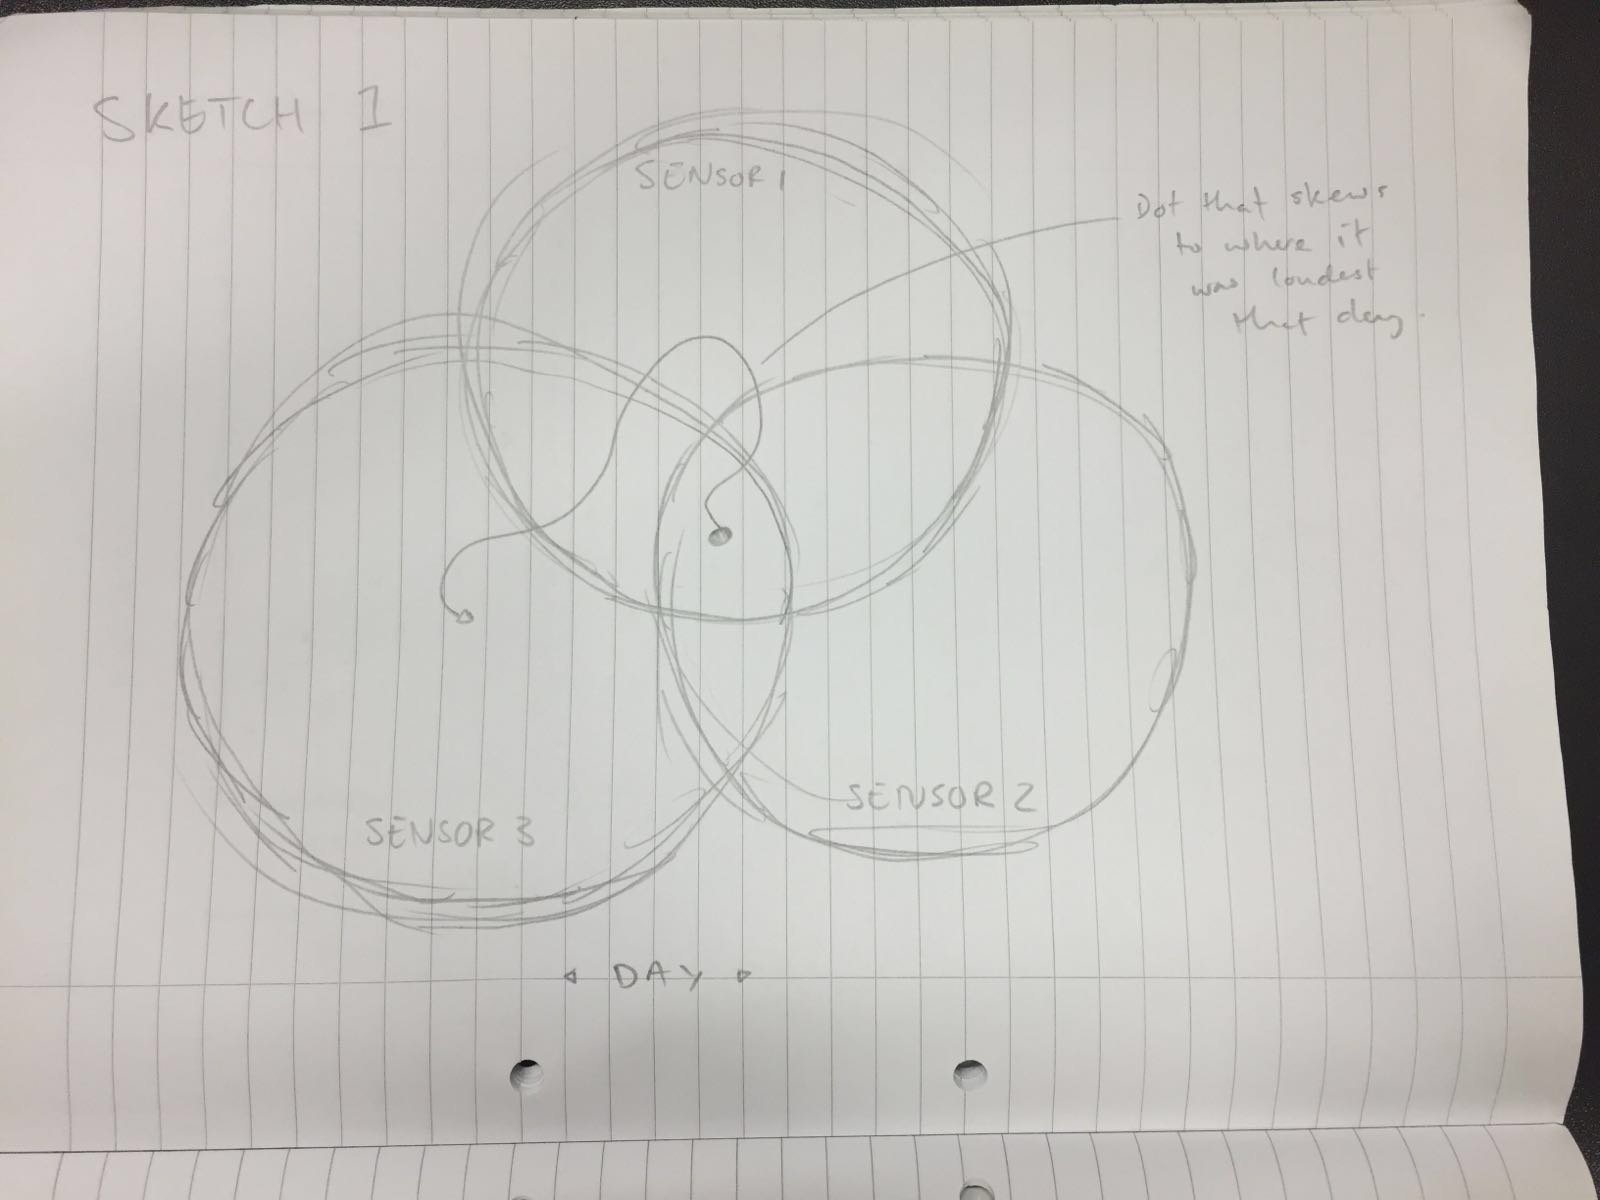 SKETCH 1
SENSOR 1
Dot that skews
to where it
was loudest
that day.
SENSOR 2
SENSOR 3
DAY